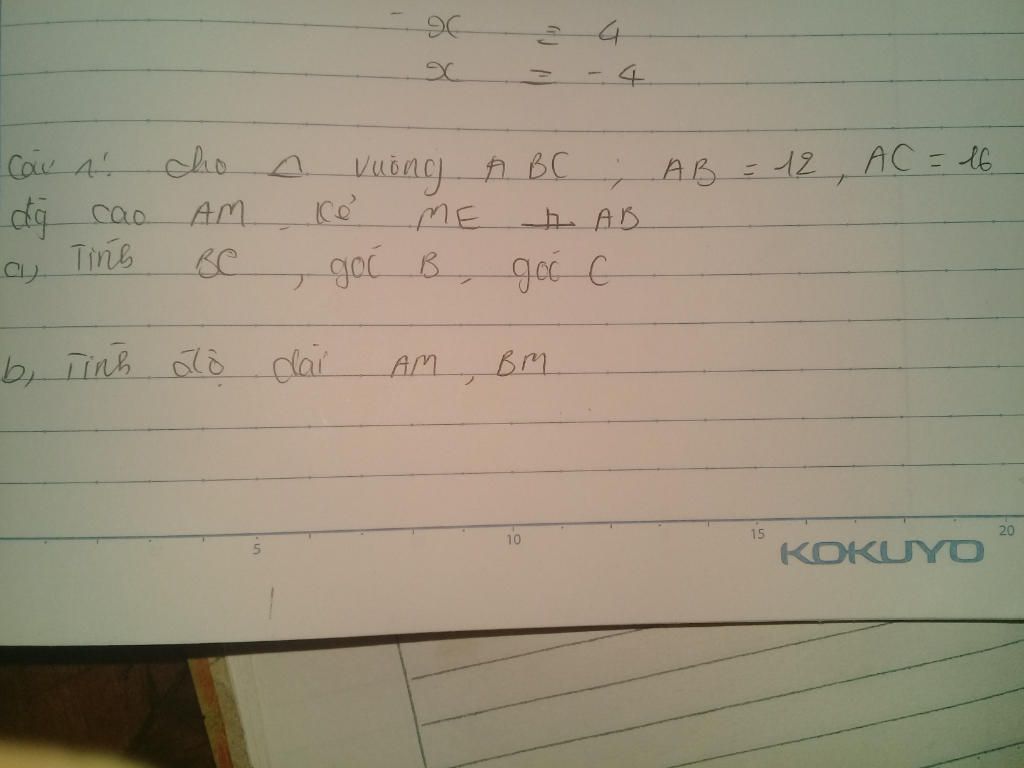 - x = 4
x = - 4
Câu 1: cho Δ vuông ABC ; AB = 12 , AC = 16
đg cao AM kẻ ME ⊥ AB
a, Tính BC , góc B , góc C
b, Tính độ dài AM , BM
5 10 15 20
KOKUYO